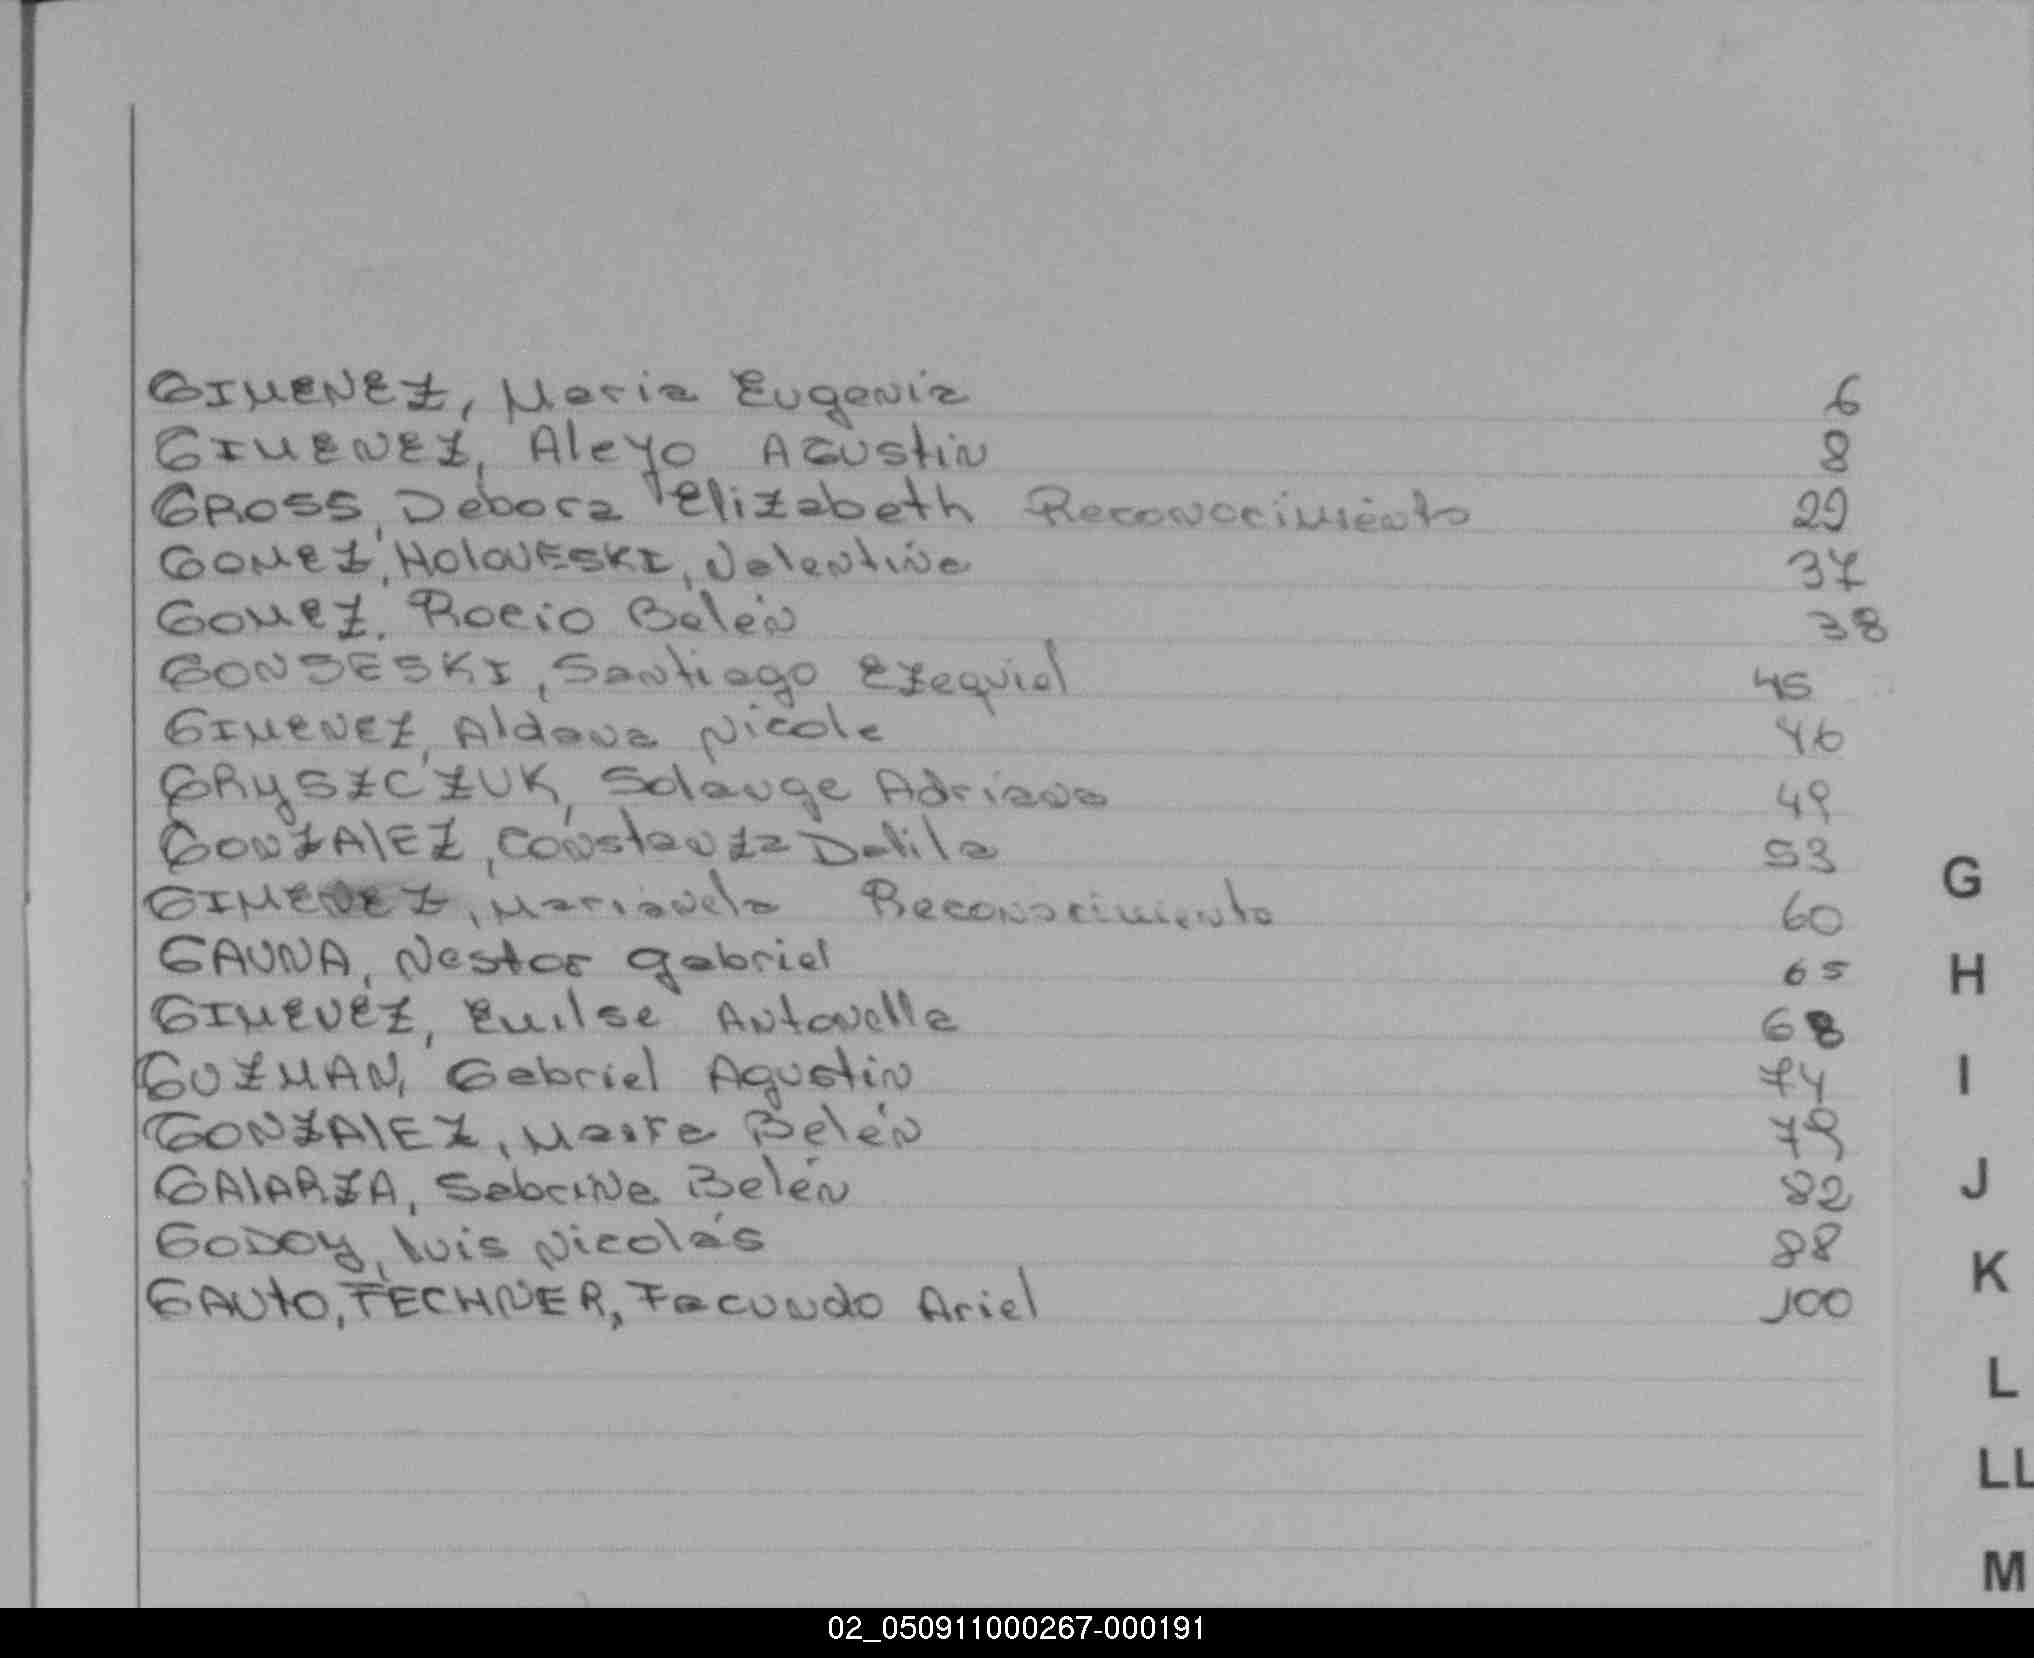 GIMENEZ, Maria Eugenia 6
GIMENEZ, Aleyo Agustin 8
GROSS, Debora Elizabeth Reconocimiento 29
GOMEZ, HoloVESKI, Valentina 37
GOMEZ, Rocio Belén 38
GONSESKI, Santiago Ezequiel 45
GIMENEZ, Aldana Nicole 46
GRYSZCZUK, Solange Adriana 49
GONZAlEZ, Constanza Dalila 53
GIMENEZ, Marianela Reconocimiento 60
GAUNA, Nestor gabriel 65
GIMENEZ, Emilse Antonella 68
GUZMAN, Gabriel Agustin 74
GONZAlEZ, Belén 79
GAlARZA, Sabrina Belén 82
GODOy, luis Nicolás 88
GAUtO, TECHNER, Facundo Ariel 100
G
H
I
J
K
L
LL
M
02_050911000267-000191